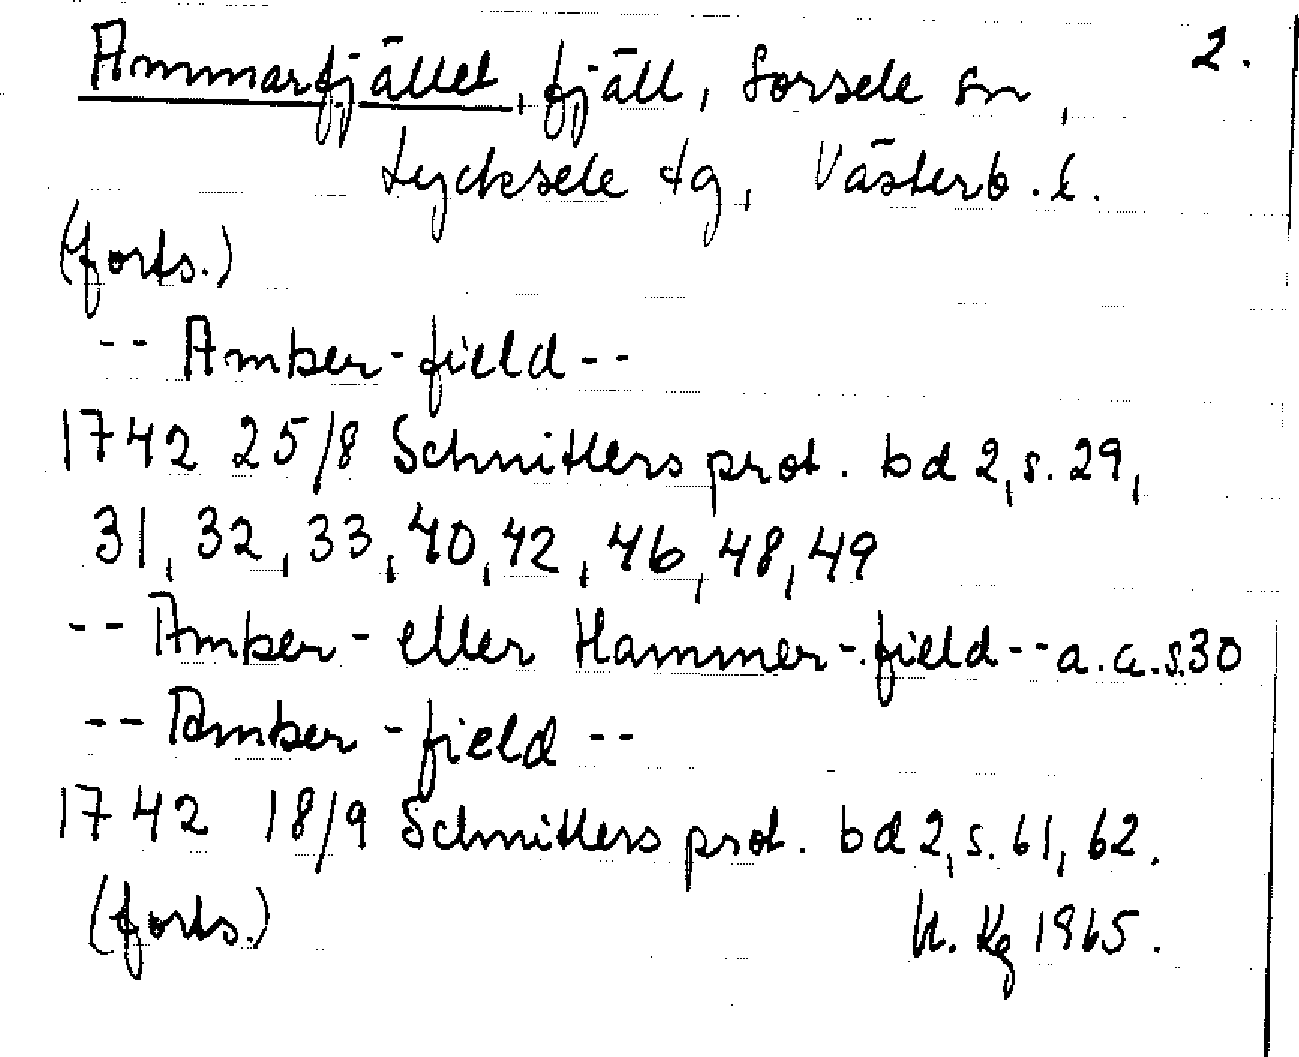 Ammarfjället, fjäll, Sorsele sn, 2.
Lycksele tg, Västerb. l.
(forts.)
-- Amber-field --
1742 25/8 Schnitlers prot. bd 2, s. 29,
31, 32, 33, 40, 42, 46, 48, 49
-- Amber- eller Hammer-field -- a.a. s. 30
-- Amber-field --
1742 18/9 Schnitlers prot. bd 2, s. 61, 62.
(forts.) K. Kg 1965.